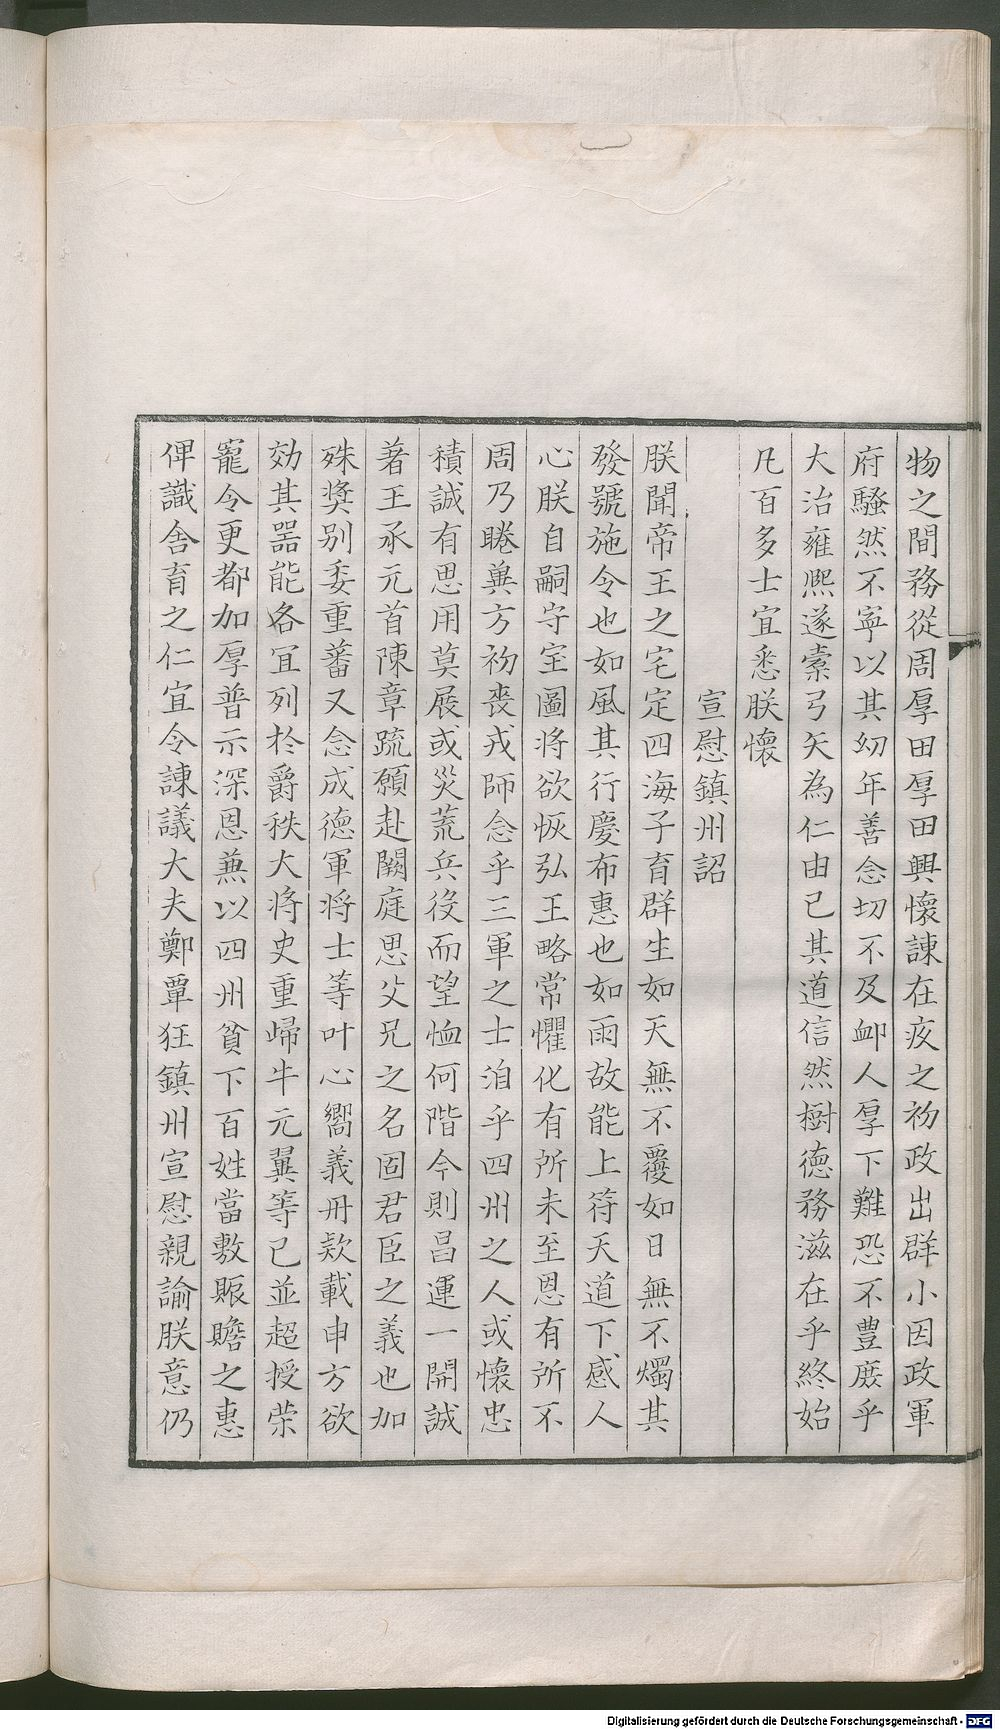 物之間務從周厚田厚田興懷諫在疚之初政出群小因政軍
府騷然不寧以其㓜年善念切不及衈人厚下難恐不豊庻乎
大治雍熈遂櫜弓矢為仁由已其道信然樹徳務滋在乎終始
凡百多士宜悉朕懷
宣慰鎮州詔
朕聞帝王之宅定四海子育群生如天無不覆如日無不燭其
發號施令也如風其行慶布惠也如雨故能上符天道下感人
心朕自嗣守宝圖将欲恢弘王略常懼化有所未至恩有所不
周乃睠兾方初喪戎師念乎三軍之士洎乎四州之人或懷忠
積誠有思用莫展或災荒兵役而望恤何階今則昌運一開誠
著王承元首陳章䟽願赴闕庭思父兄之名固君臣之義也加
殊奬别委重蕃又念成徳軍将士等叶心嚮義丹欵載申方欲
効其噐能各冝列於爵秩大将史重歸牛元翼等已並超授荣
寵令更都加厚普示深恩兼以四州貧下百姓當敷賑贍之惠
俾識舎育之仁宜令諫議大夫鄭覃狂鎮州宣慰親諭朕意仍
Digitalisierung gefördert durch die Deutsche Forschungsgemeinschaft - DFG